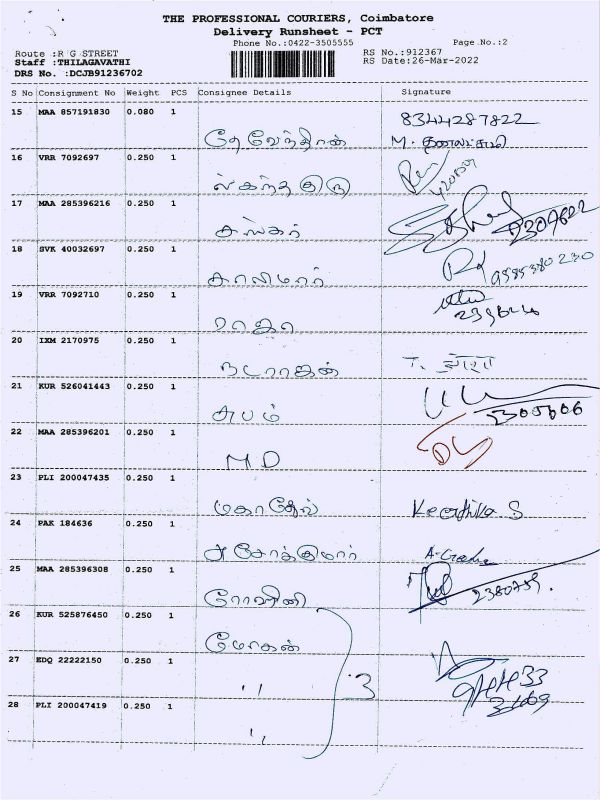 THE PROFESSIONAL COURIERS, Coimbatore
Delivery Runsheet - PCT
Phone No.:0422-3505555
Page No.:2
Route :R G STREET
Staff :THILAGAVATHI
DRS No. :DCJB91236702
RS No.:912367
RS Date:26-Mar-2022
S No Consignment No Weight PCS Consignee Details Signature
15 MAA 857191830 0.080 1 தேவேந்திரன் 8344287822
M.
16 VRR 7092697 0.250 1 ஸ்கந்தகுரு
17 MAA 285396216 0.250 1 சங்கர்
18 SVK 40032697 0.250 1 சாலிமார் 9585380230
19 VRR 7092710 0.250 1 ராஜா
20 IXM 2170975 0.250 1 நடராஜன்
21 KUR 526041443 0.250 1 சுபம் 2305606
22 MAA 285396201 0.250 1 MD
23 PLI 200047435 0.250 1 மகாதேவ் Keerthika.S
24 PAK 184636 0.250 1 அசோக்குமார்
25 MAA 285396308 0.250 1 ரோஹினி 2380759.
26 KUR 525876450 0.250 1 மோகன்
27 EDQ 22222150 0.250 1 " 3
28 PLI 200047419 0.250 1 "